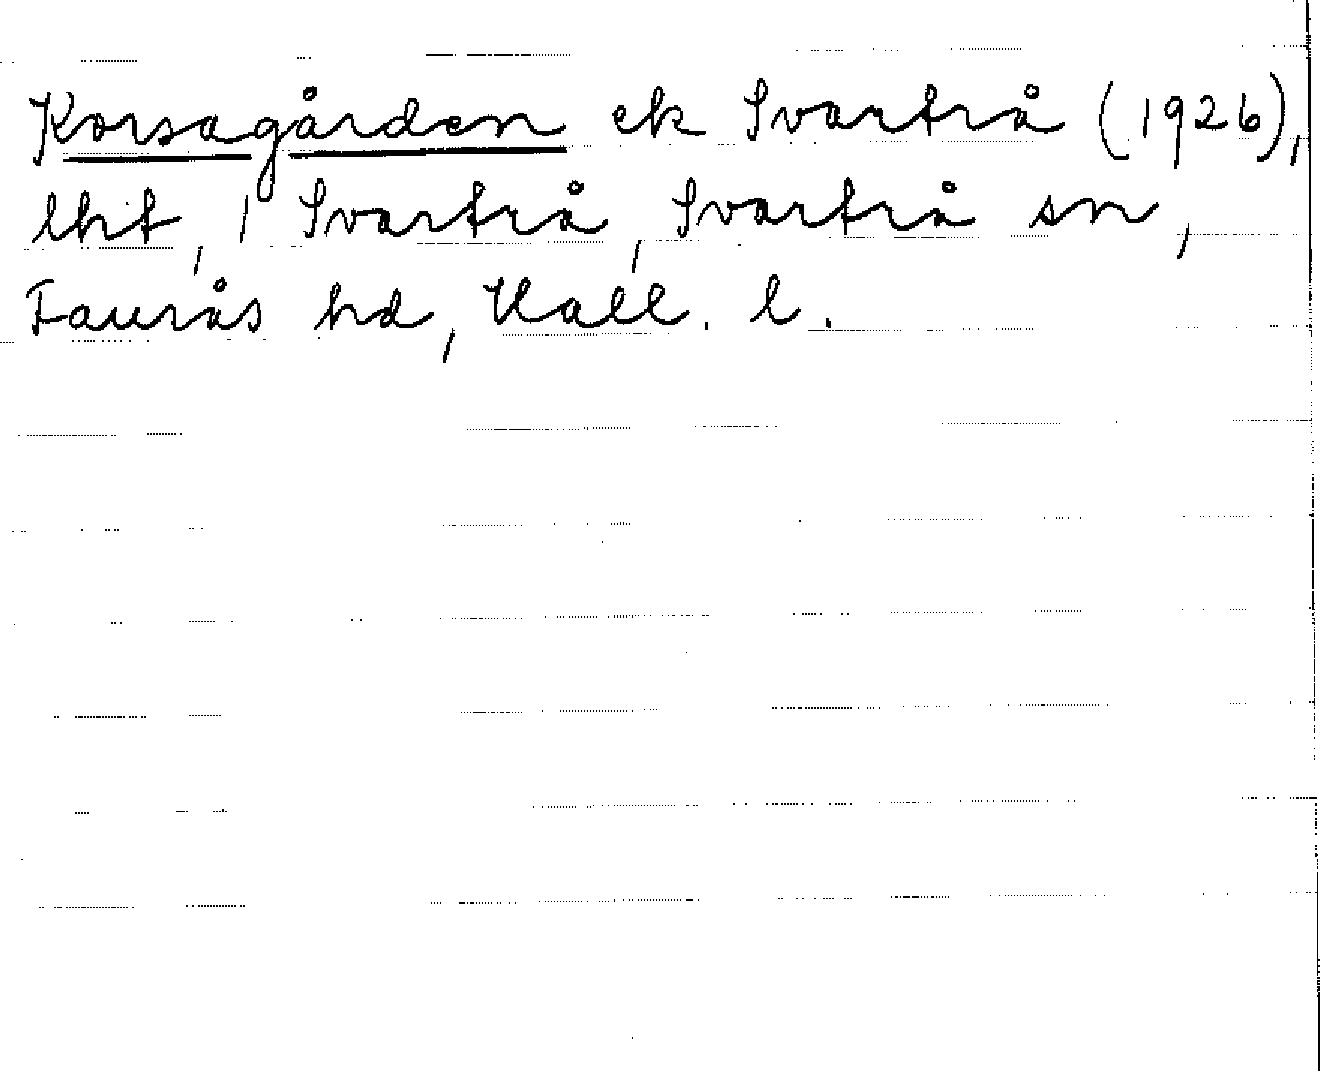 Korsagården ek Svartrå (1926),
lht, 1 Svartrå, Svartrå sn,
Faurås hd, Hall. l.